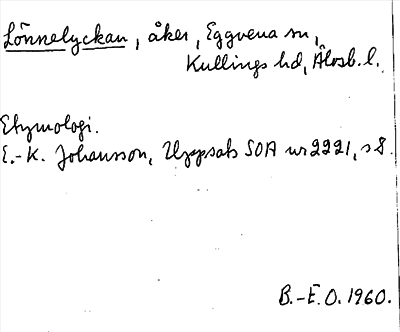 Lönnelyckan, åker, Eggvena sn,
Kullings hd, Älvsb. l.
Etymologi.
E.-K. Johansson, Uppsats SOA nr 2221, s 8.
B.-E.O. 1960.